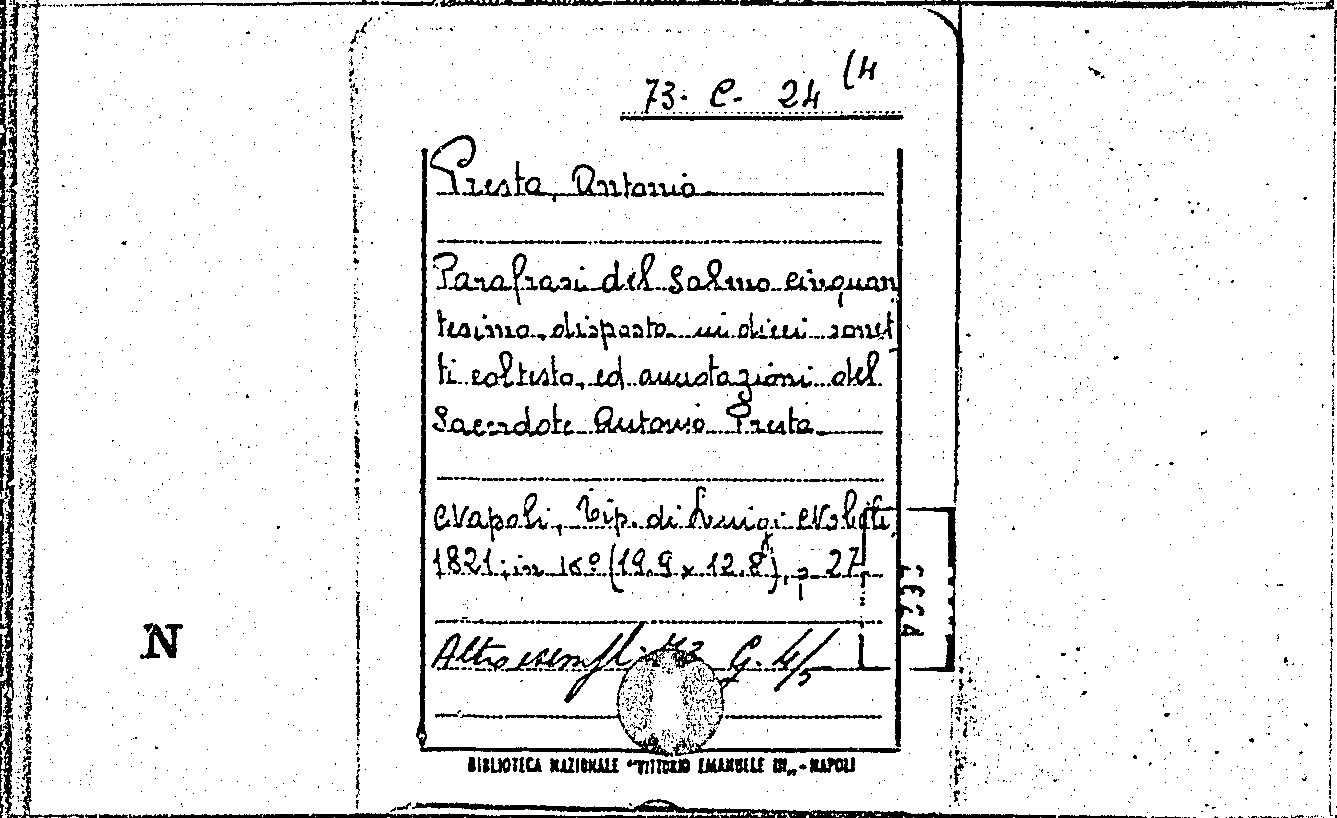 73. C. 24 (4
Presta, Antonio
Parafrasi del Salmo cinquan
tesimo, disposta in dieci sonet
ti col testo, ed annotazioni del
Sacerdote Antonio Presta
Napoli, Tip. di Luigi Nobile,
1821; in 16º (19.9 x 12.8), p 27.
Altro esempl. G. 4/5
N
BIBLIOTECA NAZIONALE "VITTORIO EMANUELE III" - NAPOLI